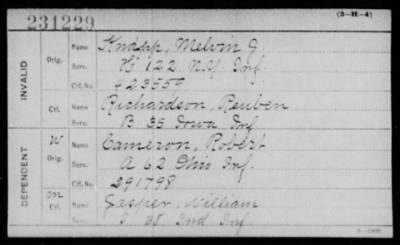 231229
(3-H-4)
INVALID
Orig.
Name
Knapp, Melvin J.
Serv.
H 122 N.Y. Inf.
Ctf. No.
423559
Ctf.
Name
Richardson, Reuben
Serv.
B 35 Iowa Inf
DEPENDENT
W
Orig.
Name
Cameron, Robert
Serv.
A 62 Ohio Inf.
Ctf. No.
291798
m
Ctf.
Name
Jasper, William
Serv.
I 38 Ind Inf